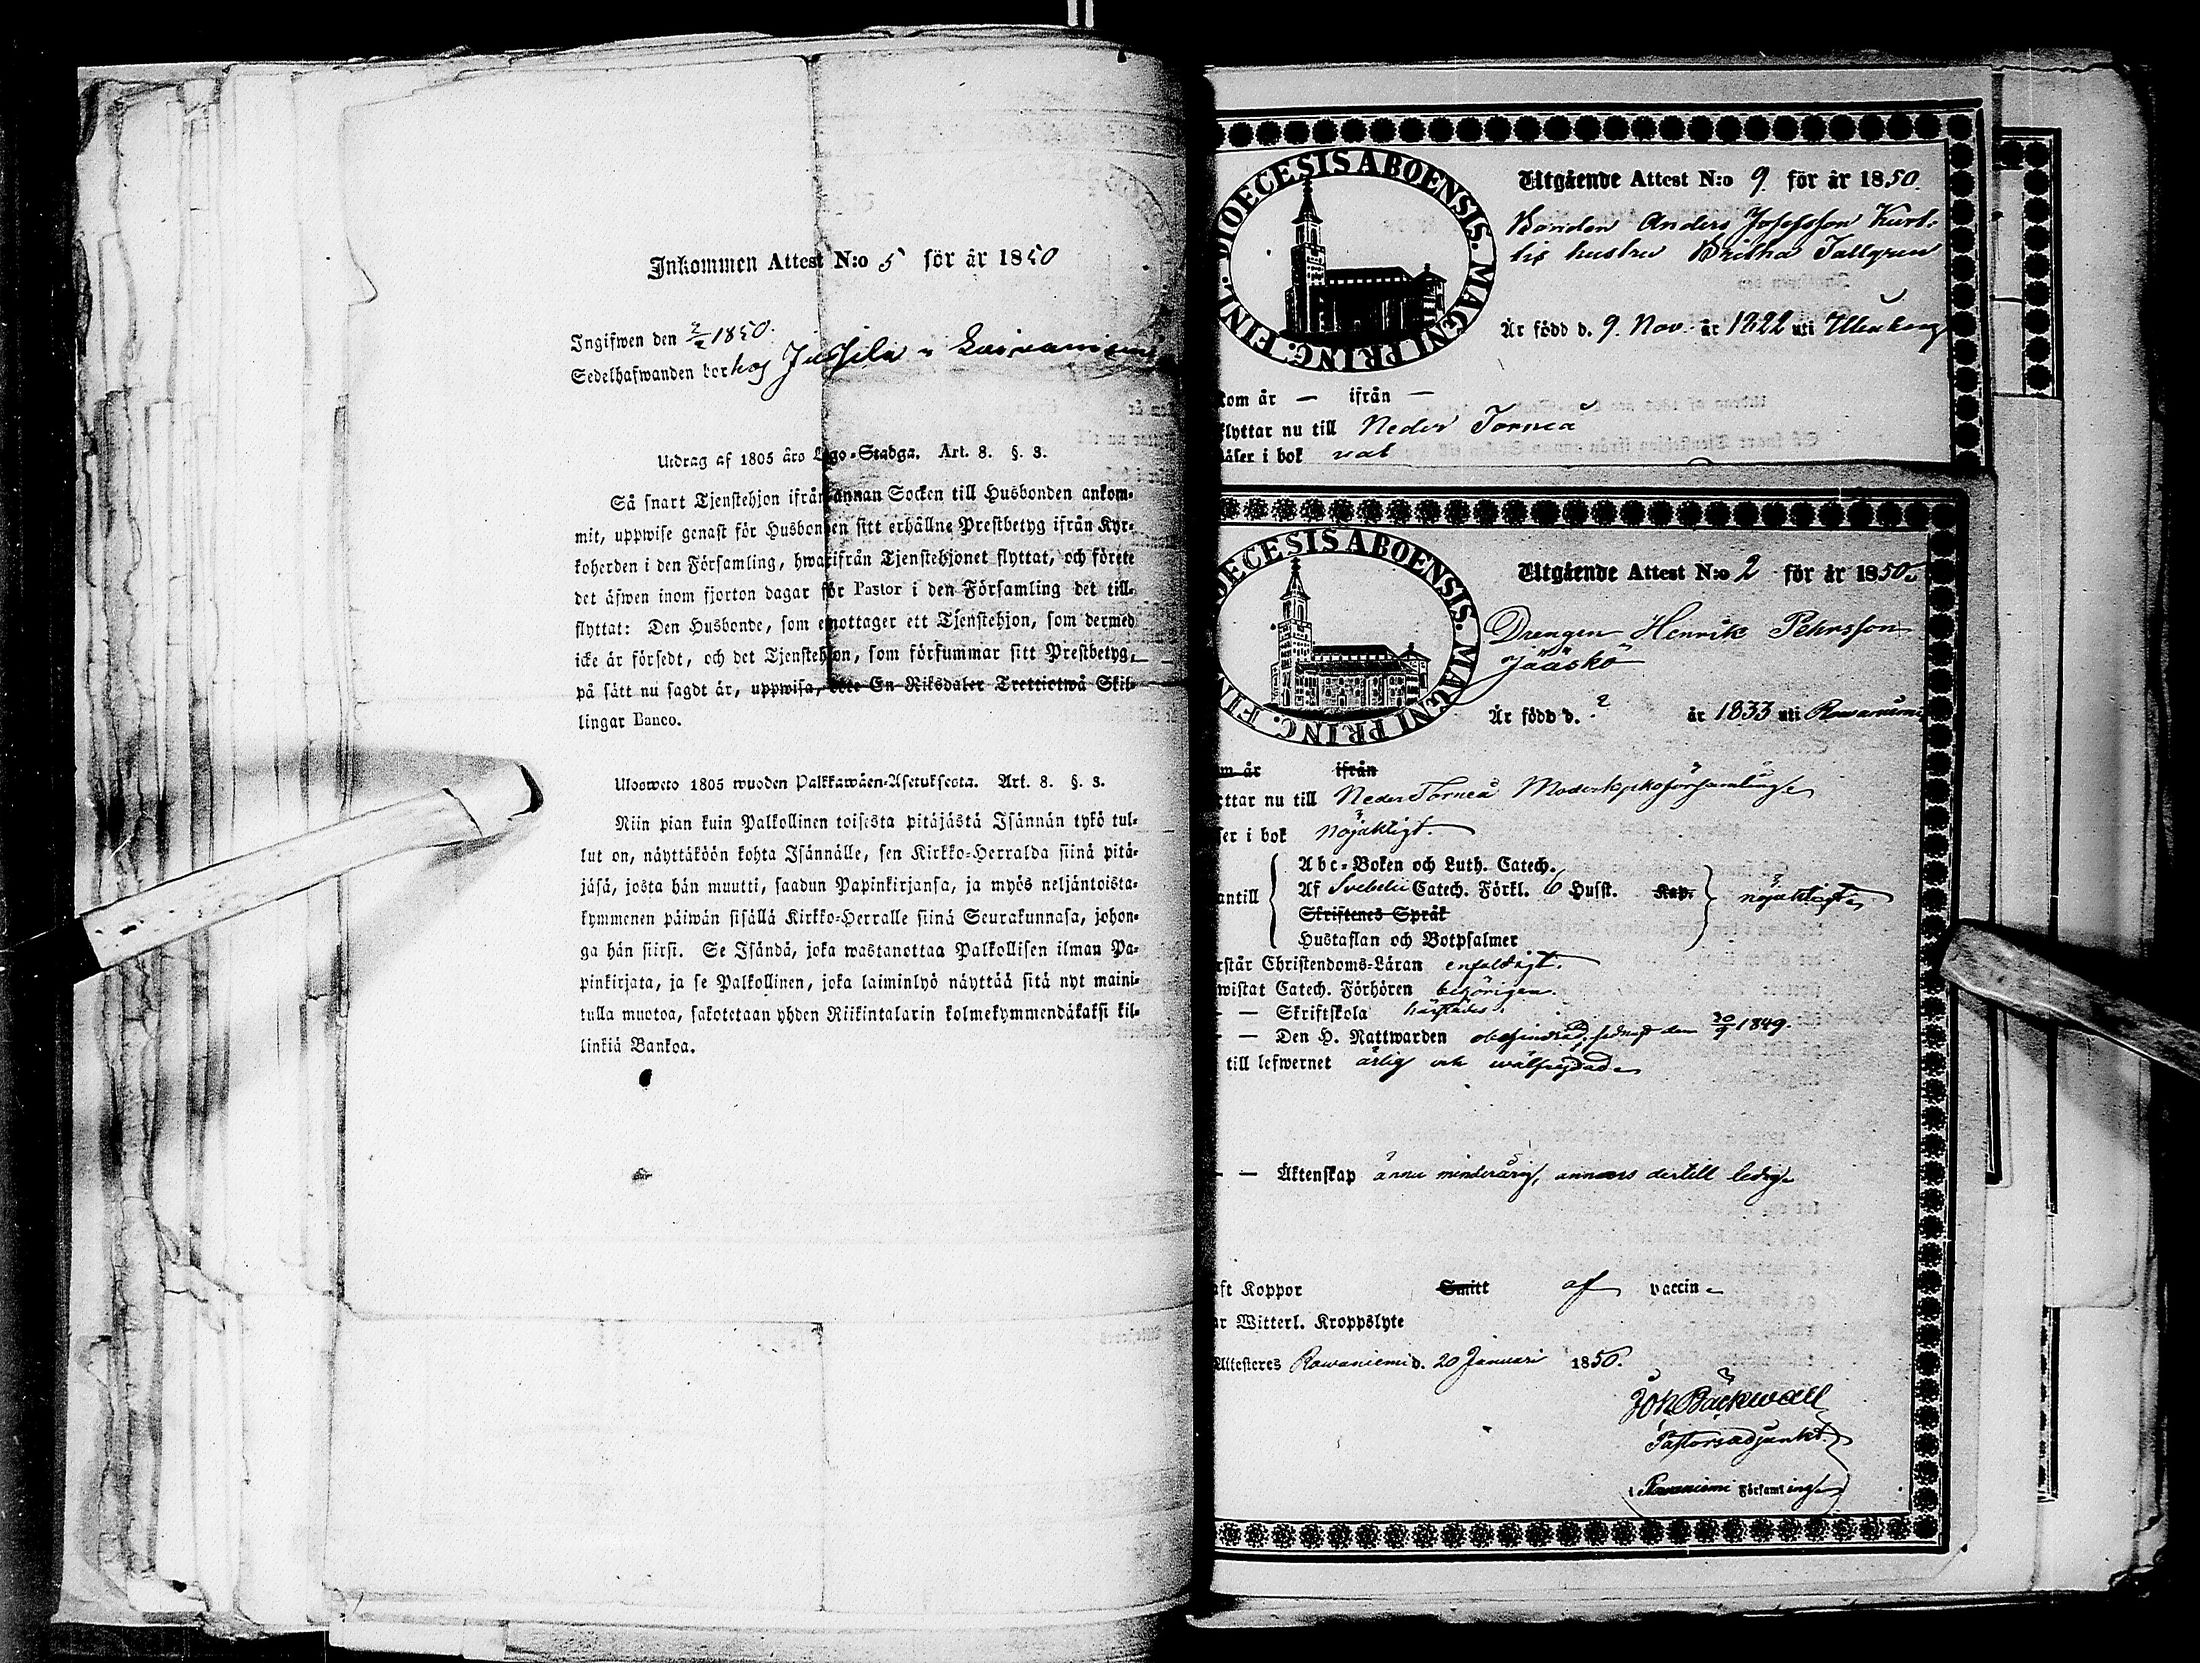 Inkommen Attest N:o 5 för år 1850
Ingifwen den 2/2 1850.
Sedelhafwanden bor hos Jussila
Utdrag af 1805 års Lego-Stadga. Art. 8. §. 3.
Så snart Tjenstehjon ifrån annan Socken till Husbonden ankom-
mit, uppwise genast för Husbonden sitt erhållne Prestbetyg ifrån Kyr-
koherden i den Församling, hwarifrån Tjenstehjonet flyttat, och förete
det äfwen inom fjorton dagar för Pastor i den Församling det till-
flyttat: Den Husbonde, som emottager ett Tjenstehjon, som dermed
icke är försedt, och det Tjenstehjon, som försummar sitt Prestbetyg,
på sätt nu sagdt är, uppwisa, böte En Riksdaler Trettiotwå Skil-
lingar Banco.
Ulosweto 1805 wuoden Palkkawäen-Asetuksesta. Art. 8. §. 3.
Niin pian kuin Palkollinen toisesta pitäjästä Isännän tykö tul-
lut on, näyttäköön kohta Isännälle, sen Kirkko-Herralda siinä pitä-
jäsä, josta hän muutti, saadun Papinkirjansa, ja myös neljäntoista-
kymmenen päiwän sisällä Kirkko-Herralle siinä Seurakunnasa, johon-
ga hän siirsi. Se Isändä, joka wastanottaa Palkollisen ilman Pa-
pinkirjata, ja se Palkollinen, joka laiminlyö näyttää sitä nyt maini-
tulla muotoa, sakotetaan yhden Riikintalarin kolmekymmendäkaksi kil-
linkiä Bankoa.
DIOECESIS ABOENSIS. MAGNI PRINC. FINL.
Utgående Attest N:o 9 för år 1850.
Bonden Anders Josefsson Kurt-
tis hustru Britha Tallgren
Är född d. 9 Nov. år 1822 uti
kom år — ifrån —
flyttar nu till Neder Torneå
läser i bok wal
DIOECESIS ABOENSIS. MAGNI PRINC. FIN
Utgående Attest N:o 2 för år 1850
Drengen Henrik Pehrsson
Jääskö
Är född d. ? år 1833 uti Rowaniemi
m år ifrån
yttar nu till Neder Torneå Moderkyrkoförsamling
ser i bok nöjaktigt.
Abc-Boken och Luth. Catech.
antill Af Svebelii Catech. Förkl. 6 Husst. Kap. nöjaktigt
Skriftenes Språk
Hustaflan och Botpsalmer
rstår Christendoms-Läran enfaldigt.
wistat Catech. Förhören behörigen.
— — Skriftskola härstädes.
— — Den H. Nattwarden obehindrad, sednast den 30/9 1849.
till lefwernet ärlig och wälfrejdad
— — Äktenskap ännu minderårig, annars dertill ledig
aft Koppor Smitt af vaccin
ar Witterl. Kroppslyte
Attesteres Rowaniemi d. 20 Januari 1850.
Joh Bäckwall
Pastorsadjunkt.
i Rowaniemi Församling